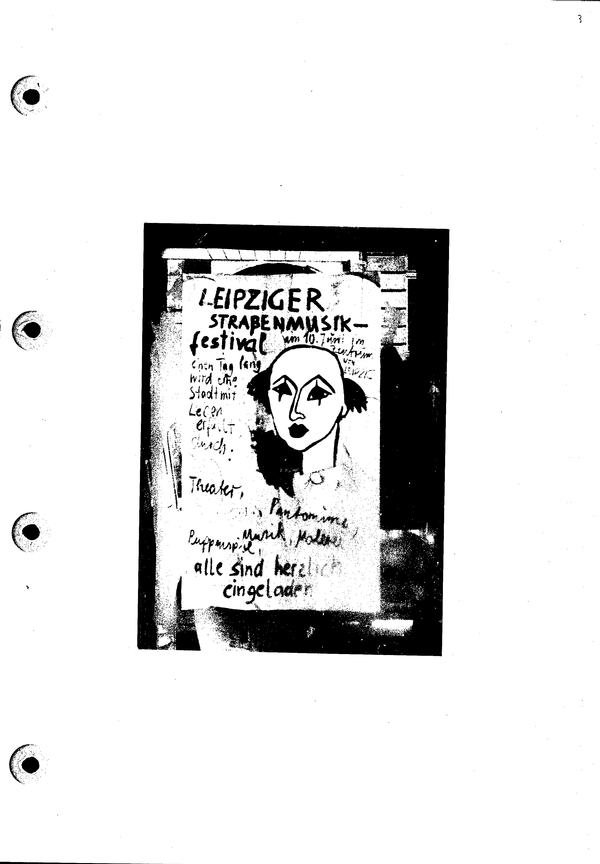 3
LEIPZIGER
STRAßENMUSIK-
festival
am 10. Juni im
Zentrum
von
LEIPZIG
einen Tag lang
wird eine
Stadt mit
Leben
erfüllt
durch:
Theater,
Pantomime
Musik, Malerei
Puppenspiel,
alle sind herzlich
eingeladen